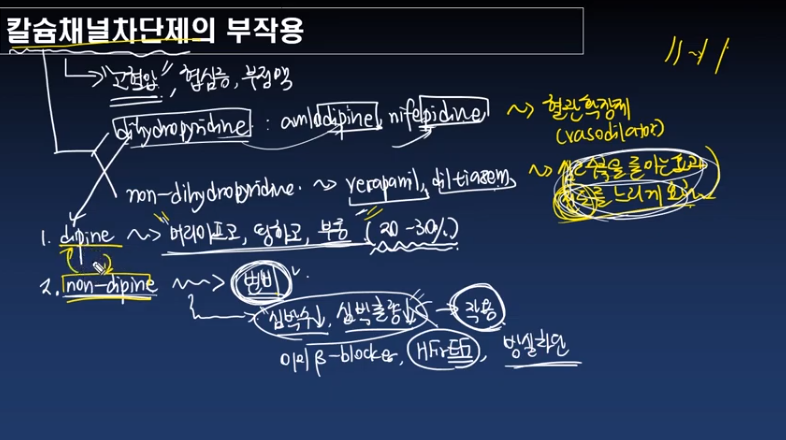 칼슘채널차단제의 부작용
"고혈압", 협심증, 부정맥
dihydropyridine : amlodipine, nifepidine ~> 혈관확장제
(vasodilator)
non-dihydropyridine. ~> verapamil, diltiazem ~> 심근수축을 줄이는효과
를 느리게 효과
1. dipine ~> "머리아프고, 띵하고, 부종" (20-30%)
2. non-dipine ~> 변비
"심박수↓, 심박출량↓" → 작용
이미 β-blocker, HFrEF, 방실차단